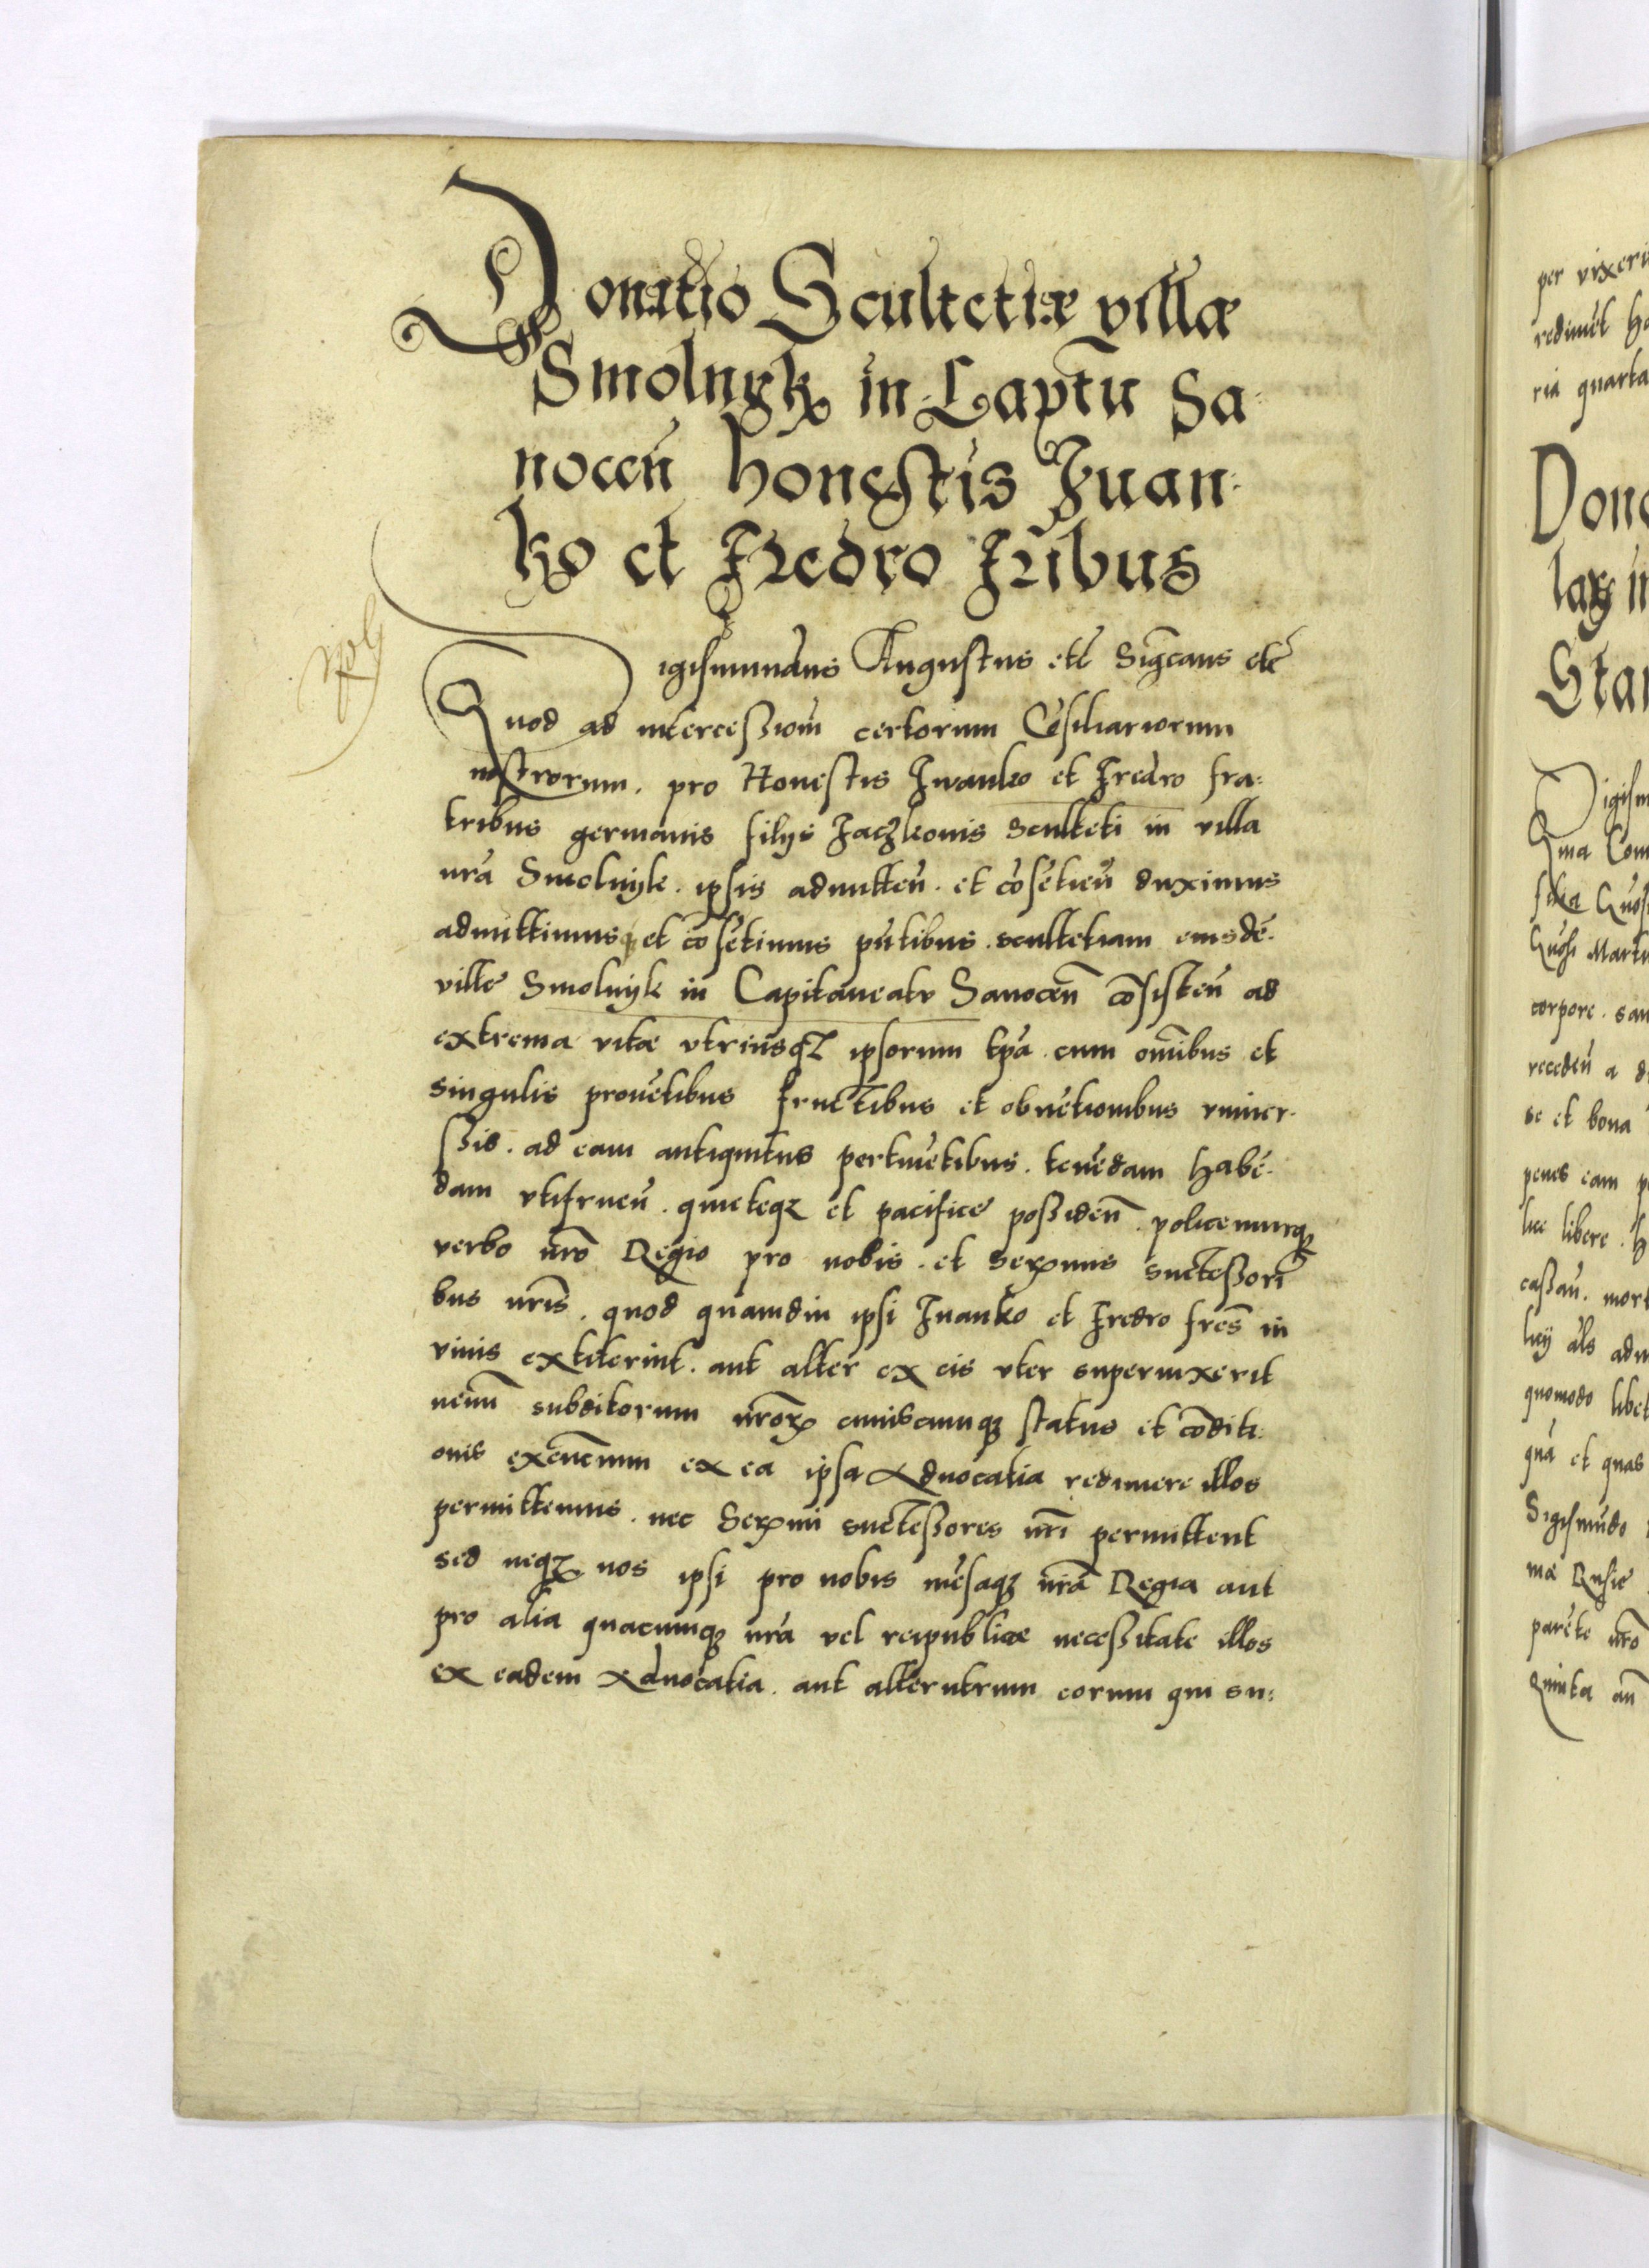 Donatio Scultetiæ villæ
Smolnyk in Captũ Sa:
nocen̄ honestis Iuan:
ko et Fredro Frībus
Sigismundus Augustus etc̄ Sig̃cans etc̄
Quod ad intercessiom̄ certorum Cōsiliariorum
nostrorum. pro Honestis Iwanko et Fredro fra:
tribus germanis filijs Iaczkonis Sculteti in villa
nr̄a Smolnyk. ipsis admitten̄. et cōsētien̄ duximus
admittimusq; et cōsētimus pn̄tibus. scultetiam eiusdē.
villæ Smolnyk in Capitaneatu Sanocen̄ cōsisten̄ ad
extrema vitæ vtriusq; ipsorum tpa. cum om̄ibus et
singulis prouētibus fructibus et obuētionibus vniuer.
sis. ad eam antiquitus pertinētibus. tenēdam habē.
dam vtifruen̄. quieteq; et pacifice possiden̄. policemurq;
verbo nr̄o Regio pro nobis. et Serm̄is successori
bus nr̄is. quod quamdiu ipsi Iuanko et Fredro fres̄ in
viuis extiterint. aut alter ex eis vter superuixerit
nemi subditorum nr̄orꝝ cuiuscumq; status et cōditi:
onis exn̄cium ex ea ipsa Aduocatia redimere illos
permittemus. nec Serm̄i successores nr̄i permittent
sed neq; nos ipsi pro nobis mēsaq; nr̄a Regia aut
pro alia quacumq; nr̄a vel reipublicæ necessitate illos
ex eadem Aduocatia. aut alterutrum eorum qui su:
per vixeri
redimēt
ria quarta
Dona
lax in
Stan
Sigism
Qua Com
Marti
corpore. san
receden̄ a
se et bona
penes eam
lice libere. h
cassan̄. mort
licij als adm
quomodo libet
qua et quas
Sigismūdo
mæ Rusie
parēte nr̄o
Quinta an̄